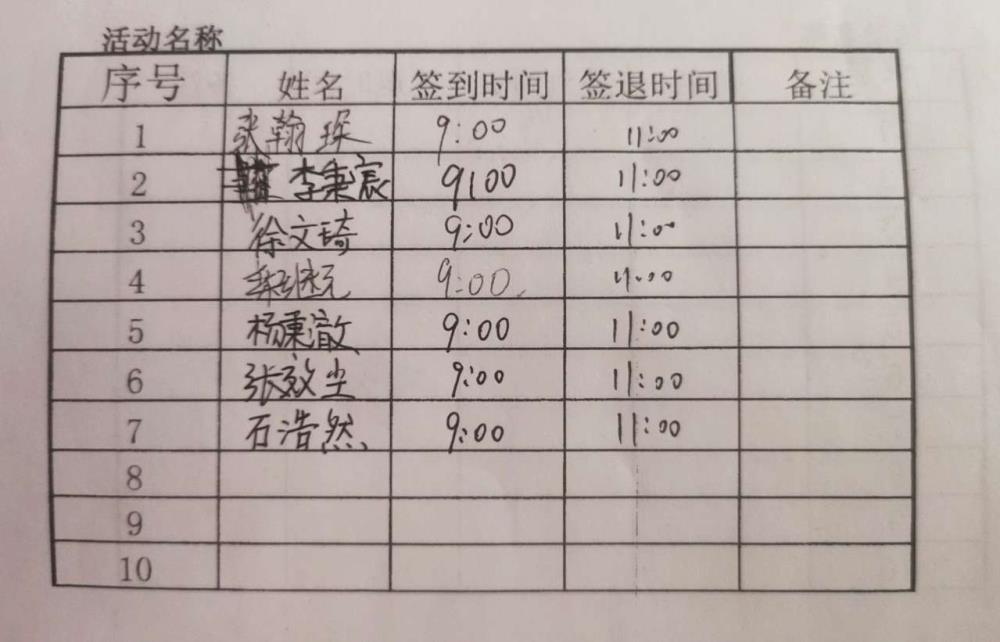 活动名称
序号 姓名 签到时间 签退时间 备注
1 张翰琛 9:00 11:00
2 李秉宸 9:00 11:00
3 徐文琦 9:00 11:00
4 9:00 11:00
5 杨秉澈 9:00 11:00
6 张效尘 9:00 11:00
7 石浩然 9:00 11:00
8
9
10